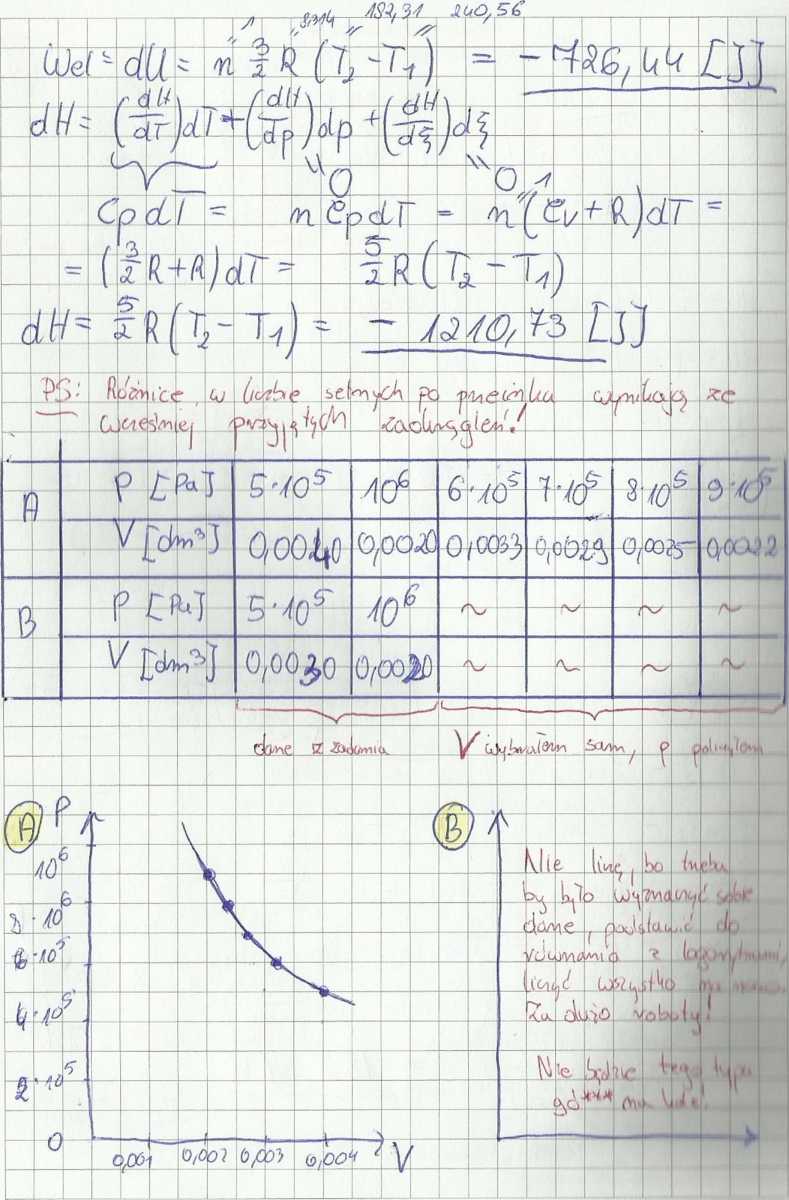 1 8,314 182,31 240,56
Wel = dU = n 3/2 R (T₂ - T₁) = - 726,44 [J]
dH = (dH/dT)dT + (dH/dp)dp + (dH/dξ)dξ
0 0
1
CpdT = n CpdT = n (Cv + R)dT =
= (3/2 R + R)dT = 5/2 R (T₂ - T₁)
dH = 5/2 R (T₂ - T₁) = - 1210,73 [J]
PS: Różnice w liczbie setnych po przecinku wynikają ze
wcześniej przyjętych zaokrągleń!
A P [Pa] 5·10⁵ 10⁶ 6·10⁵ 7·10⁵ 8·10⁵ 9·10⁵
V [dm³] 0,0040 0,0020 0,0033 0,0029 0,0025 0,0022
B P [Pa] 5·10⁵ 10⁶ ~ ~ ~ ~
V [dm³] 0,0030 0,0020 ~ ~ ~ ~
dane z zadania V wybrałem sam, p policzyłem
A P
10⁶
8·10⁶
6·10⁵
4·10⁵
2·10⁵
0
0,001 0,002 0,003 0,004 V
B
Nie liczę, bo trzeba
by było wyznaczyć sobie
dane, podstawić do
równania z logarytmami,
liczyć wszystko na nowo.
Za dużo roboty!
Nie będzie tego typu
gó*** na kole!